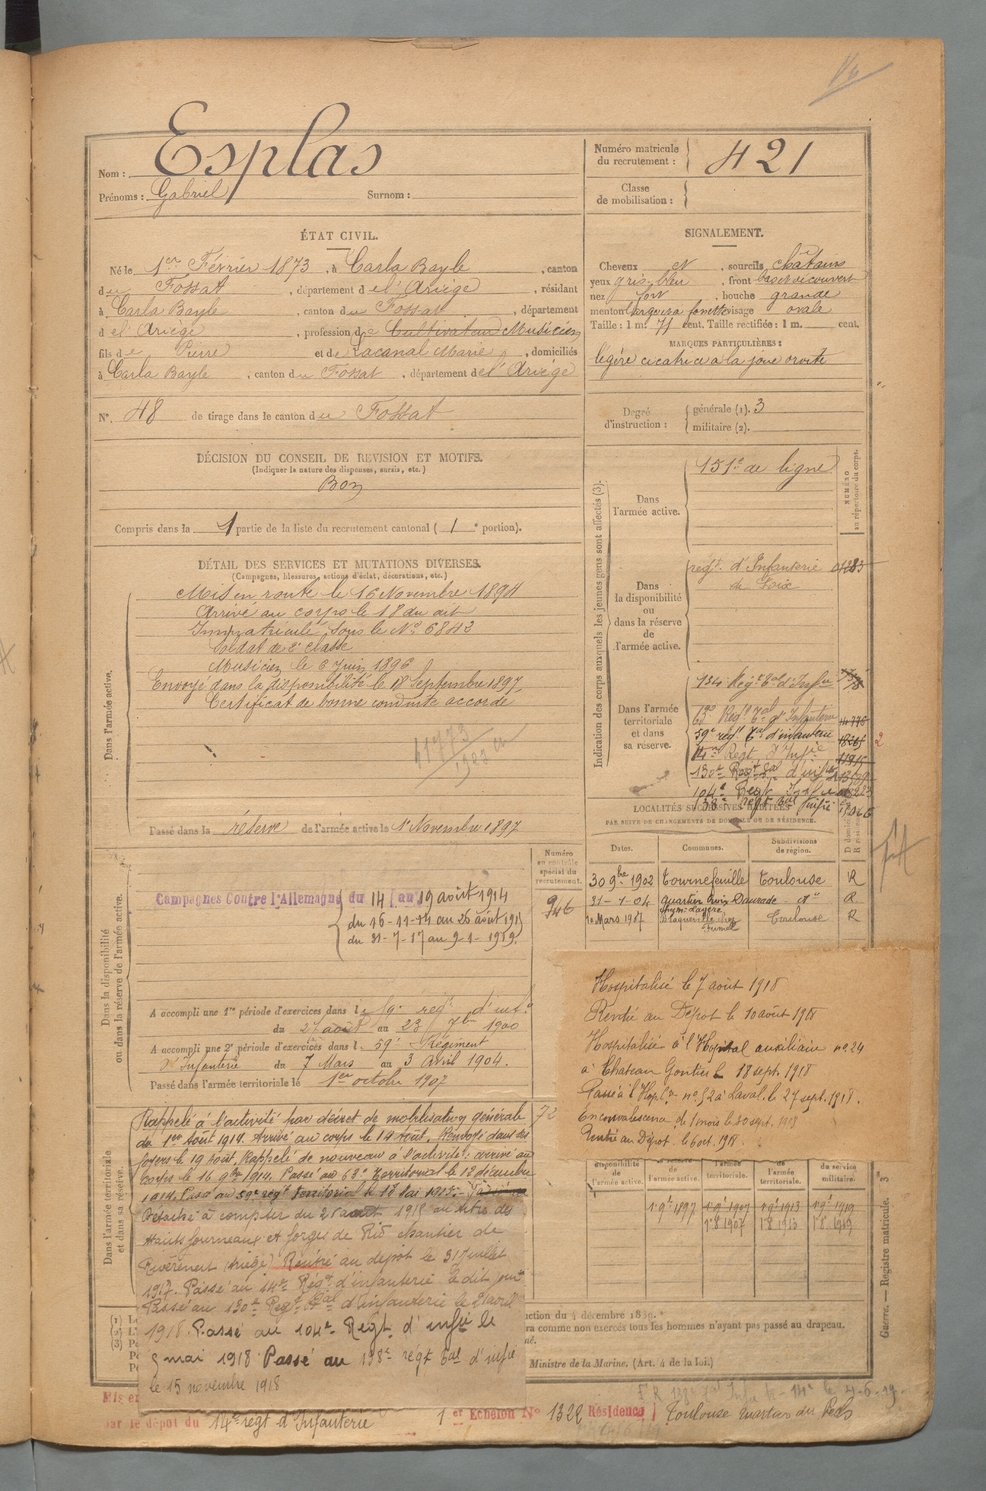 Nom : Esplas
Prénoms : Gabriel Surnom :
Numéro matricule
du recrutement : 421
Classe
de mobilisation :
ÉTAT CIVIL.
Né le 1er Février 1873, à Carla Bayle, canton
du Fossat, département de l'Ariège, résidant
à Carla Bayle, canton du Fossat, département
de l'Ariège, profession de Cultivateur Musicien
fils de Pierre et de Lacanal Marie, domiciliés
à Carla Bayle, canton du Fossat, département de l'Ariège
N° 48 de tirage dans le canton du Fossat
SIGNALEMENT.
Cheveux et, sourcils châtains
yeux gris bleu, front bas et découvert
nez fort, bouche grande
menton large visage ovale
Taille : 1 m. 71 cent. Taille rectifiée : 1 m. cent.
MARQUES PARTICULIÈRES :
légère cicatrice à la joue droite
Degré
d'instruction :
générale (1). 3
militaire (2).
DÉCISION DU CONSEIL DE REVISION ET MOTIFS.
(Indiquer la nature des dispenses, sursis, etc.)
Bon
Compris dans la 1 partie de la liste du recrutement cantonal (1e portion).
DÉTAIL DES SERVICES ET MUTATIONS DIVERSES.
(Campagnes, blessures, actions d'éclat, décorations, etc.)
Dans l'armée active.
Mis en route le 16 Novembre 1894
Arrivé au corps le 18 du dit
Immatriculé sous le N° 6842
Soldat de 2e classe
Musicien le 6 Juin 1896
Envoyé dans la disponibilité le 18 Septembre 1897
Certificat de bonne conduite accordé
11773
Passé dans la réserve de l'armée active le 1er Novembre 1897
Indication des corps auxquels les jeunes gens sont affectés (3).
NUMÉRO
au répertoire du corps.
Dans
l'armée active.
151e de ligne
Dans
la disponibilité
ou
dans la réserve
de
l'armée active.
regt. d'Infanterie
de Foix
Dans l'armée
territoriale
et dans
sa réserve.
134 Regt Tal d'Infie
59e régt Tal d'infanterie
14me Regt d'Infie
130e Regt Tal d'infie
104e Regt Infie
LOCALITÉS SUCCESSIVES HABITÉES
PAR SUITE DE CHANGEMENTS DE DOMICILE OU DE RÉSIDENCE.
Dates. Communes. Subdivisions
de région.
30 9bre 1902 Tournefeuille Toulouse R
31-1-04 Daurade do R
Mars 1907 Toulouse R
Dans la disponibilité
ou dans la réserve de l'armée active.
Numéro
au contrôle
spécial du
recrutement.
946
Campagnes Contre l'Allemagne du 14 au 19 août 1914
du 16-11-14 au 26 août 1915
du 31-7-17 au 9-1-1919.
A accompli une 1re période d'exercices dans le 59e regt d'infie
du 27 août au 23 7bre 1900
A accompli une 2e période d'exercices dans le 59e Régiment
d'Infanterie du 7 Mars au 3 Avril 1904.
Passé dans l'armée territoriale le 1er octobre 1907
Hospitalisé le 7 août 1918
Rentré au Dépot le 10 août 1918
Hospitalisé à l'Hopital auxiliaire no 24
à Chateau Gontier le 18 sept. 1918
Passé à l'Hopl no 52 à Laval le 27 sept. 1918.
En convalescence de 1 mois le 30 sept. 1918
Rentré au Dépot le 6 oct. 1918.
Dans l'armée territoriale
et dans sa réserve.
Rappelé à l'activité par décret de mobilisation générale
du 1er Août 1914. Arrivé au corps le 14 août. Renvoyé dans ses
foyers le 19 août. Rappelé de nouveau à l'activité. arrivé au
corps le 16 9bre 1914. Passé au 63e Territorial le 12 décembre
1914. Passé au 59e regt Territorial le 18 Mai 1915.
Détaché à compter du 26 aout 1915 au titre des
Hauts fourneaux et forges de chantier de
Riverenert (Ariège) Rentré au dépot le 31 juillet
1917. Passé au 14e Regt d'infanterie le dit jour
Passé au 130e Regt Tal d'infanterie le 21 avril
1918. Passé au 104e Regt d'infie le
5 mai 1918 Passé au 158e regt Tal d'infie
le 15 novembre 1918
disponibilité
l'armée active. l'armée territoriale. l'armée territoriale. du service militaire.
1er 9bre 1897 1er 9bre 1907 1er 9bre 1913 1er 9bre 1919
1er 8 1907 1er 8 1913 1er 8 1919
ction du 4 décembre 1889.
ra comme non exercés tous les hommes n'ayant pas passé au drapeau.
Ministre de la Marine. (Art. 4 de la loi.)
Guerre. — Registre matricule. 3
Mis en
par le dépot du 14e regt d'Infanterie 1er Echelon N° 1322 Résidence Toulouse